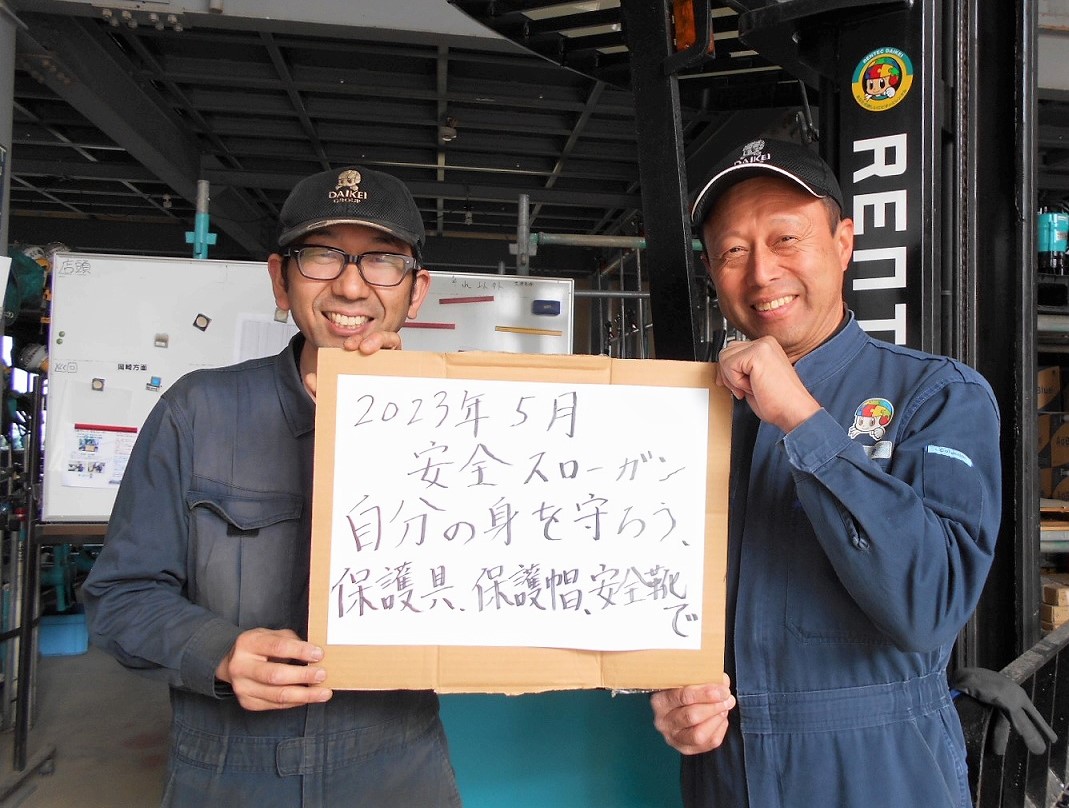 RENTEC DAIKEI
RENT
DAIKEI
GROUP
DAIKEI
店頭
岡崎方面
2023年5月
安全スローガン
自分の身を守ろう、
保護具、保護帽、安全靴
で